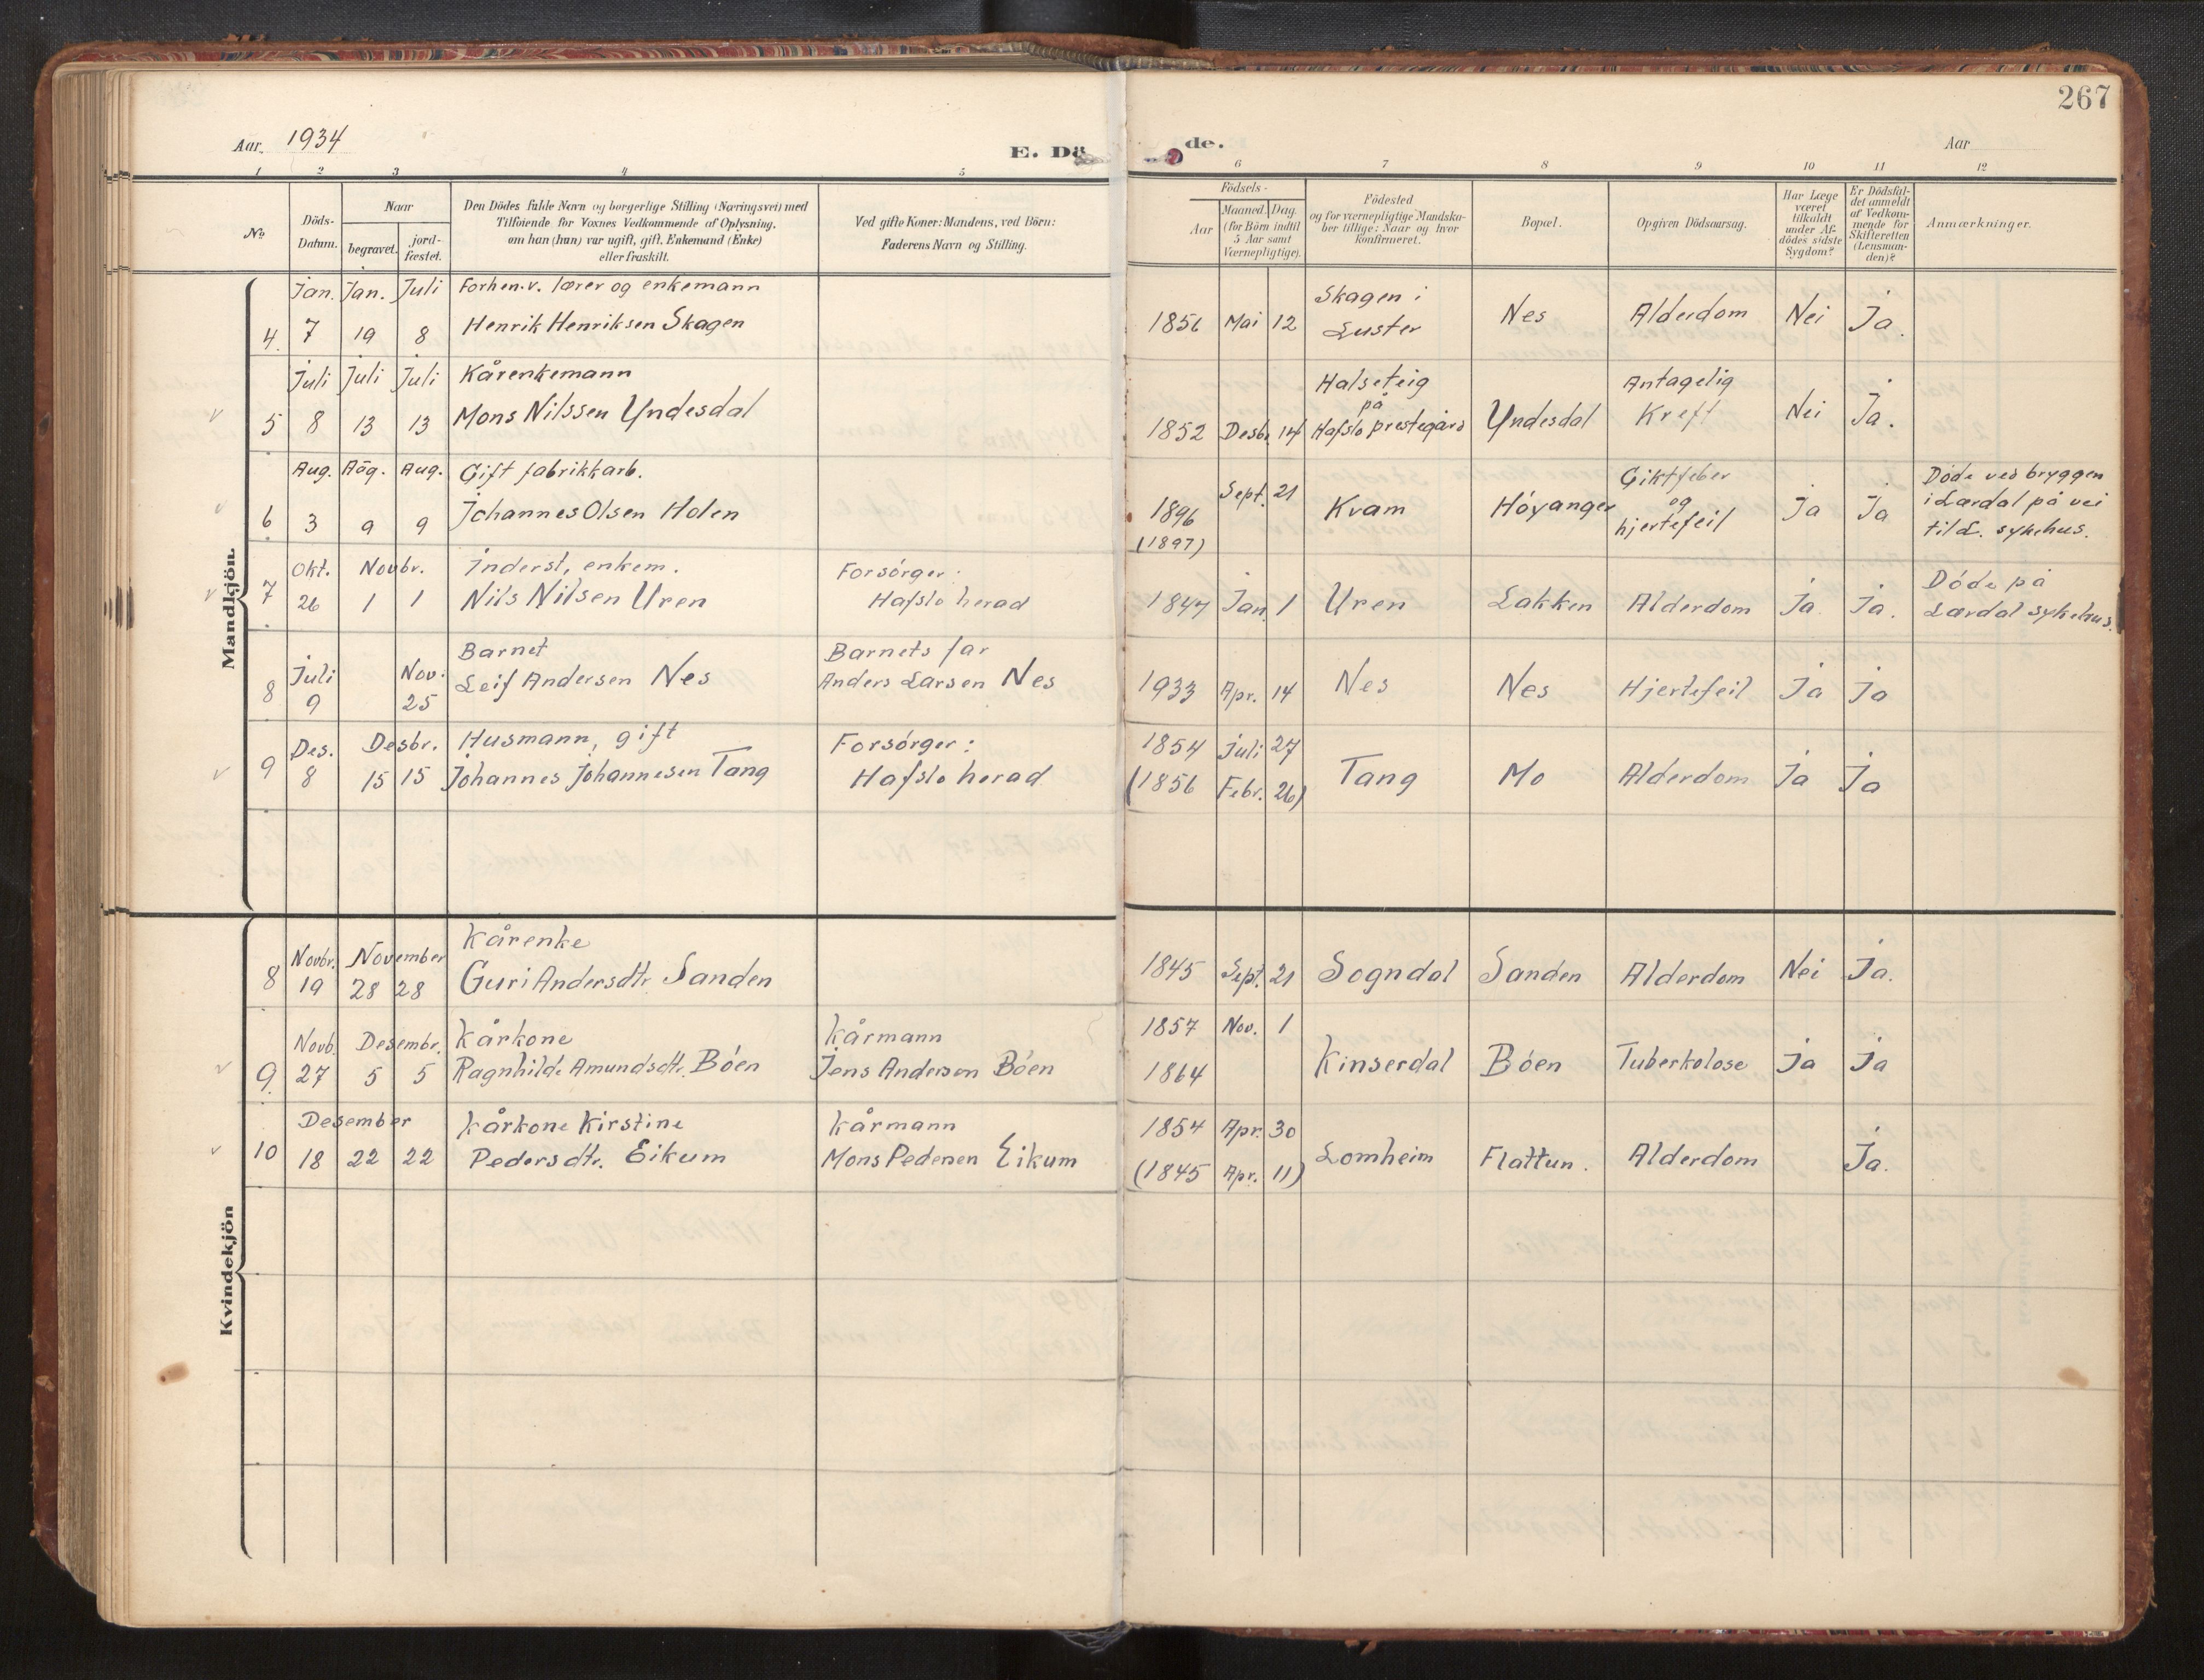 267
Aar. 1934
E. Dö de.
Aar
1 2 3 4 5 6 7 8 9 10 11 12
No
Döds-
Datum.
Naar
begravet.
jord-
fæstet.
Den Dödes fulde Navn og borgerlige Stilling (Næringsvei) med
Tilföiende for Voxnes Vedkommende af Oplysning,
om han (hun) var ugift, gift, Enkemand (Enke)
eller fraskilt.
Ved gifte Koner: Mandens, ved Börn:
Faderens Navn og Stilling.
Födsels-
Aar
Maaned. Dag.
(for Börn indtil
5 Aar samt
Værnepligtige).
Födested
og for værnepligtige Mandska-
ber tillige: Naar og hvor
konfirmeret.
Bopæl.
Opgiven Dödsaarsag.
Har Læge
været
tilkaldt
under Af-
dödes sidste
Sygdom?
Er Dödsfal-
det anmeldt
af Vedkom-
mende for
Skifteretten
(Lensman-
den)?
Anmærkninger.
Mandkjön.
Jan. Jan. Juli Forhen.v. lærer og enkemann Skagen i
4. 7 19 8 Henrik Henriksen Skagen 1856 Mai 12 Luster Nes Alderdom Nei Ja.
Juli Juli Juli Kårenkemann Halseteig Antagelig
på
5 8 13 13 Mons Nilssen Yndesdal 1852 Desbr. 14 Hafslo prestegård Yndesdal Kreft Nei Ja.
Aug. Aug. Aug. Gift fabrikkarb. Sept. 21 Giktfeber Døde ved bryggen
6 3 9 9 Johannes Olsen Holen 1896 Kvam Høyanger og Ja Ja i Lærdal på vei
(1897) hjertefeil til L. sykehus.
Okt. Novbr. Inderst, enkem. Forsørger: Døde på
7 26 1 1 Nils Nilsen Uren Hafslo herad 1847 Jan. 1 Uren Lakken Alderdom Ja. Ja. Lærdal sykehus.
Barnet Barnets far
8 Juli Nov. Leif Andersen Nes Anders Larsen Nes 1933 Apr. 14 Nes Nes Hjertefeil Ja Ja
9 25
Des. Desbr. Husmann, gift Forsørger: 1854 Juli 27
9 8 15 15 Johannes Johannesen Tang Hafslo herad (1856 Febr. 26) Tang Mo Alderdom Ja Ja
Kvindekjön
Kårenke
8 Novbr. November
19 28 28 Guri Andersdtr. Sanden 1845 Sept. 21 Sogndal Sanden Alderdom Nei Ja.
Novb. Desembr. Kårkone Kårmann 1857 Nov. 1
9 27 5 5 Ragnhilde Amundsdtr. Bøen Jens Andersen Bøen 1864 Kinserdal Bøen Tuberkolose Ja Ja
Desember Kårkone Kirstine Kårmann 1854 Apr. 30
10 18 22 22 Pedersdtr. Eikum Mons Pedersen Eikum (1845 Apr. 11) Lomheim Flattun. Alderdom Ja.